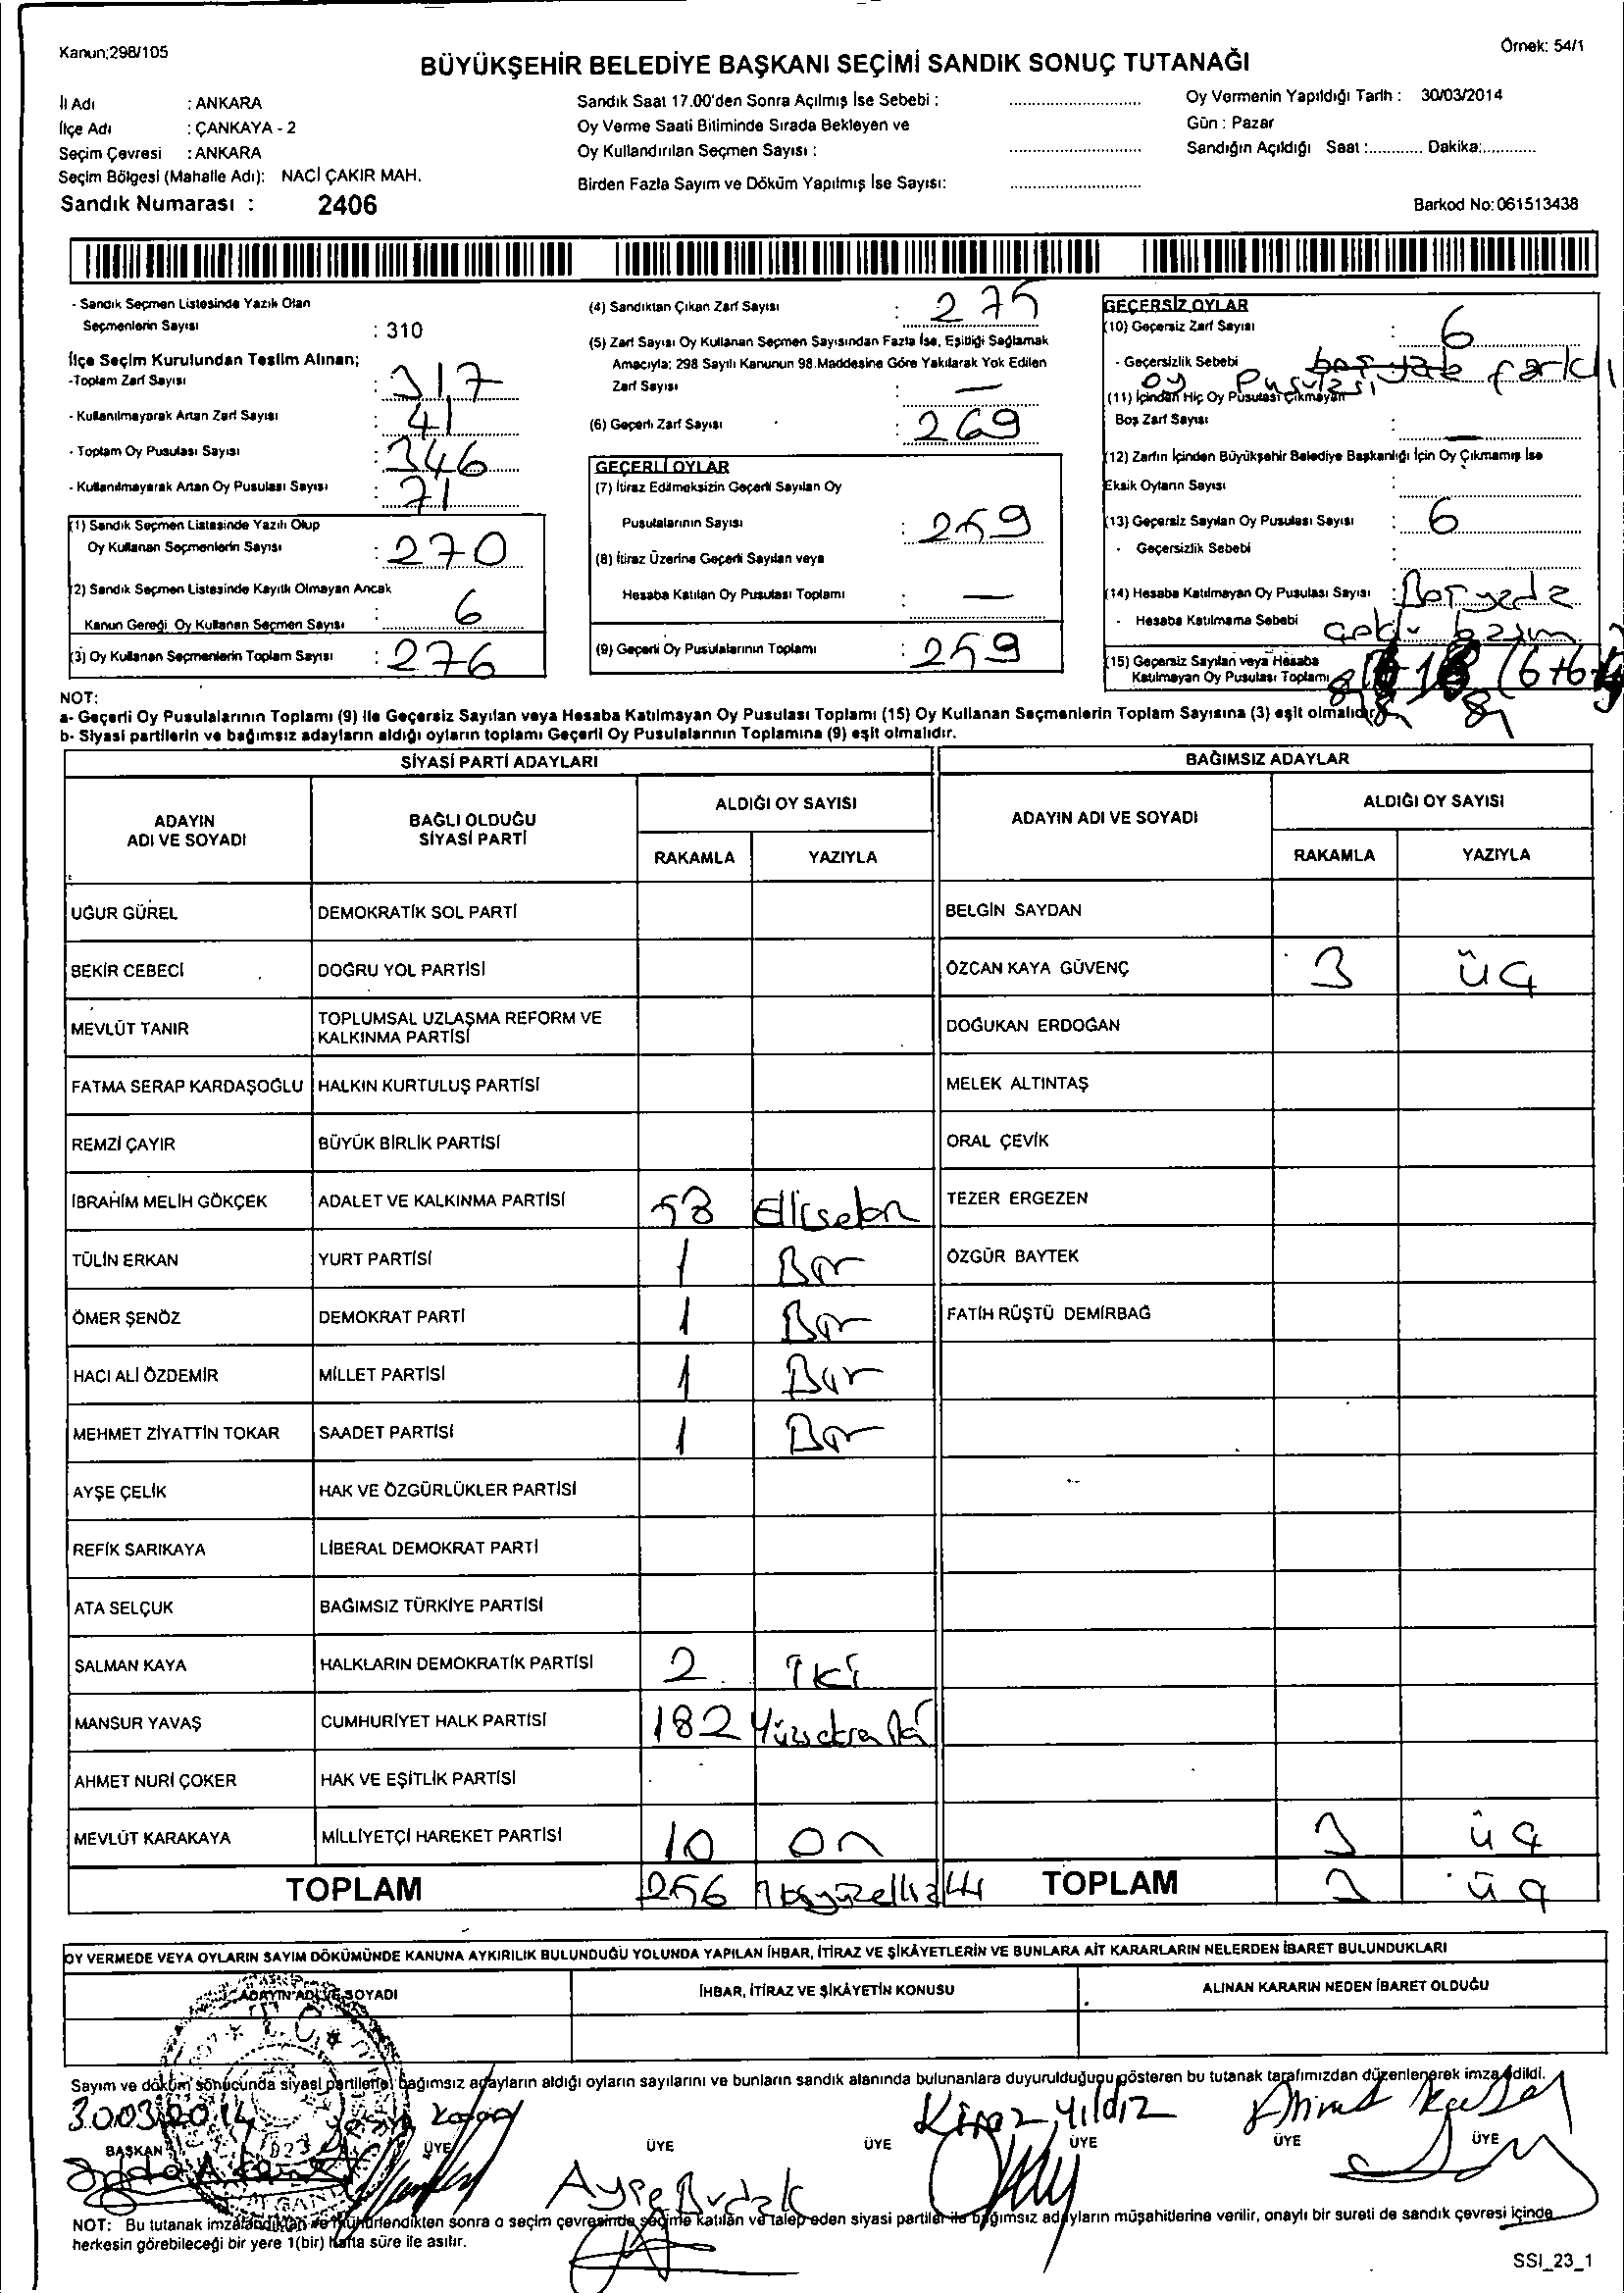 Kanun:298/105
Örnek: 54/1
BÜYÜKŞEHİR BELEDİYE BAŞKANI SEÇİMİ SANDIK SONUÇ TUTANAĞI
İl Adı : ANKARA
İlçe Adı : ÇANKAYA - 2
Seçim Çevresi : ANKARA
Seçim Bölgesi (Mahalle Adı): NACİ ÇAKIR MAH.
Sandık Numarası : 2406
Sandık Saat 17.00'den Sonra Açılmış İse Sebebi :
Oy Verme Saati Bitiminde Sırada Bekleyen ve
Oy Kullandırılan Seçmen Sayısı :
Birden Fazla Sayım ve Döküm Yapılmış İse Sayısı:
Oy Vermenin Yapıldığı Tarih : 30/03/2014
Gün : Pazar
Sandığın Açıldığı Saat :............ Dakika:............
Barkod No:061513438
- Sandık Seçmen Listesinde Yazılı Olan
Seçmenlerin Sayısı : 310
İlçe Seçim Kurulundan Teslim Alınan;
-Toplam Zarf Sayısı : 317
- Kullanılmayarak Artan Zarf Sayısı : 41
- Toplam Oy Pusulası Sayısı : 346
- Kullanılmayarak Artan Oy Pusulası Sayısı : 71
(1) Sandık Seçmen Listesinde Yazılı Olup
Oy Kullanan Seçmenlerin Sayısı : 270
(2) Sandık Seçmen Listesinde Kayıtlı Olmayan Ancak
Kanun Gereği Oy Kullanan Seçmen Sayısı : 6
(3) Oy Kullanan Seçmenlerin Toplam Sayısı : 276
(4) Sandıktan Çıkan Zarf Sayısı : 275
(5) Zarf Sayısı Oy Kullanan Seçmen Sayısından Fazla İse, Eşitliği Sağlamak
Amacıyla; 298 Sayılı Kanunun 98.Maddesine Göre Yakılarak Yok Edilen
Zarf Sayısı : —
(6) Geçerli Zarf Sayısı : 269
GEÇERLİ OYLAR
(7) İtiraz Edilmeksizin Geçerli Sayılan Oy
Pusulalarının Sayısı : 259
(8) İtiraz Üzerine Geçerli Sayılan veya
Hesaba Katılan Oy Pusulası Toplamı : —
(9) Geçerli Oy Pusulalarının Toplamı : 259
GEÇERSİZ OYLAR
(10) Geçersiz Zarf Sayısı : 6
- Geçersizlik Sebebi farklı
oy Pusulası
(11) İçinden Hiç Oy Pusulası Çıkmayan
Boş Zarf Sayısı : —
(12) Zarfın İçinden Büyükşehir Belediye Başkanlığı İçin Oy Çıkmamış İse
Eksik Oyların Sayısı :
(13) Geçersiz Sayılan Oy Pusulası Sayısı : 6
- Geçersizlik Sebebi :
(14) Hesaba Katılmayan Oy Pusulası Sayısı :
- Hesaba Katılmama Sebebi
(15) Geçersiz Sayılan veya Hesaba
Katılmayan Oy Pusulası Toplamı
NOT:
a- Geçerli Oy Pusulalarının Toplamı (9) ile Geçersiz Sayılan veya Hesaba Katılmayan Oy Pusulası Toplamı (15) Oy Kullanan Seçmenlerin Toplam Sayısına (3) eşit olmalıdır.
b- Siyasi partilerin ve bağımsız adayların aldığı oyların toplamı Geçerli Oy Pusulalarının Toplamına (9) eşit olmalıdır.
SİYASİ PARTİ ADAYLARI
ADAYIN ADI VE SOYADI
BAĞLI OLDUĞU SİYASİ PARTİ
ALDIĞI OY SAYISI
RAKAMLA YAZIYLA
UĞUR GÜREL DEMOKRATİK SOL PARTİ
BEKİR CEBECİ DOĞRU YOL PARTİSİ
MEVLÜT TANIR TOPLUMSAL UZLAŞMA REFORM VE KALKINMA PARTİSİ
FATMA SERAP KARDAŞOĞLU HALKIN KURTULUŞ PARTİSİ
REMZİ ÇAYIR BÜYÜK BİRLİK PARTİSİ
İBRAHİM MELİH GÖKÇEK ADALET VE KALKINMA PARTİSİ 58
TÜLİN ERKAN YURT PARTİSİ 1 Bir
ÖMER ŞENÖZ DEMOKRAT PARTİ 1 Bir
HACI ALİ ÖZDEMİR MİLLET PARTİSİ 1 Bir
MEHMET ZİYATTİN TOKAR SAADET PARTİSİ 1 Bir
AYŞE ÇELİK HAK VE ÖZGÜRLÜKLER PARTİSİ
REFİK SARIKAYA LİBERAL DEMOKRAT PARTİ
ATA SELÇUK BAĞIMSIZ TÜRKİYE PARTİSİ
SALMAN KAYA HALKLARIN DEMOKRATİK PARTİSİ 2 İki
MANSUR YAVAŞ CUMHURİYET HALK PARTİSİ 182
AHMET NURİ ÇOKER HAK VE EŞİTLİK PARTİSİ
MEVLÜT KARAKAYA MİLLİYETÇİ HAREKET PARTİSİ 10 On
TOPLAM 256
BAĞIMSIZ ADAYLAR
ADAYIN ADI VE SOYADI
ALDIĞI OY SAYISI
RAKAMLA YAZIYLA
BELGİN SAYDAN
ÖZCAN KAYA GÜVENÇ 3 üç
DOĞUKAN ERDOĞAN
MELEK ALTINTAŞ
ORAL ÇEVİK
TEZER ERGEZEN
ÖZGÜR BAYTEK
FATİH RÜŞTÜ DEMİRBAĞ
3 üç
TOPLAM 3 üç
OY VERMEDE VEYA OYLARIN SAYIM DÖKÜMÜNDE KANUNA AYKIRILIK BULUNDUĞU YOLUNDA YAPILAN İHBAR, İTİRAZ VE ŞİKÂYETLERİN VE BUNLARA AİT KARARLARIN NELERDEN İBARET BULUNDUKLARI
ADAYIN ADI VE SOYADI
İHBAR, İTİRAZ VE ŞİKÂYETİN KONUSU
ALINAN KARARIN NEDEN İBARET OLDUĞU
Sayım ve döküm sonucunda siyasi partilerle, bağımsız adayların aldığı oyların sayılarını ve bunların sandık alanında bulunanlara duyurulduğunu gösteren bu tutanak tarafımızdan düzenlenerek imza edildi.
30.03.2014
Kiraz Yıldız
BAŞKAN ÜYE ÜYE ÜYE ÜYE ÜYE ÜYE
Ayşe Budak
NOT: Bu tutanak imzalandıktan ve mühürlendikten sonra o seçim çevresinde seçime katılan ve talep eden siyasi partiler ile bağımsız adayların müşahitlerine verilir, onaylı bir sureti de sandık çevresi içinde
herkesin görebileceği bir yere 1(bir) hafta süre ile asılır.
SSI_23_1